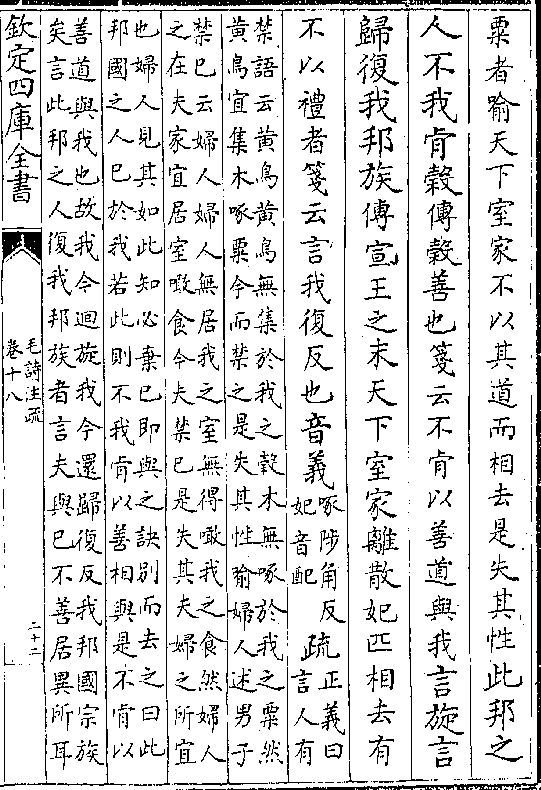 粟者喻天下室家不以其道而相去是失其性此邦之
人不我肯榖傳榖善也箋云不肯以善道與我言旋言
歸復我邦族傳宣王之末天下室家離散妃匹相去有
不以禮者箋云言我復反也音義啄陟角反
妃音配
疏正義曰
言人有
禁語云黄鳥黄鳥無集於我之榖木無啄於我之粟然
黄鳥宜集木啄粟今而禁之是失其性喻婦人述男子
禁已云婦人婦人無居我之室無得噉我之食然婦人
之在夫家宜居室噉食今夫禁已是失其夫婦之所宜
也婦人見其如此知必棄已即與之訣別而去之曰此
邦國之人已於我若此則不我肯以善相與是不肯以
善道與我也故我今迴旋我今還歸復反我邦國宗族
矣言此邦之人復我邦族者言夫與已不善居異所耳
欽定四庫全書
毛詩注疏
卷十八
二十二